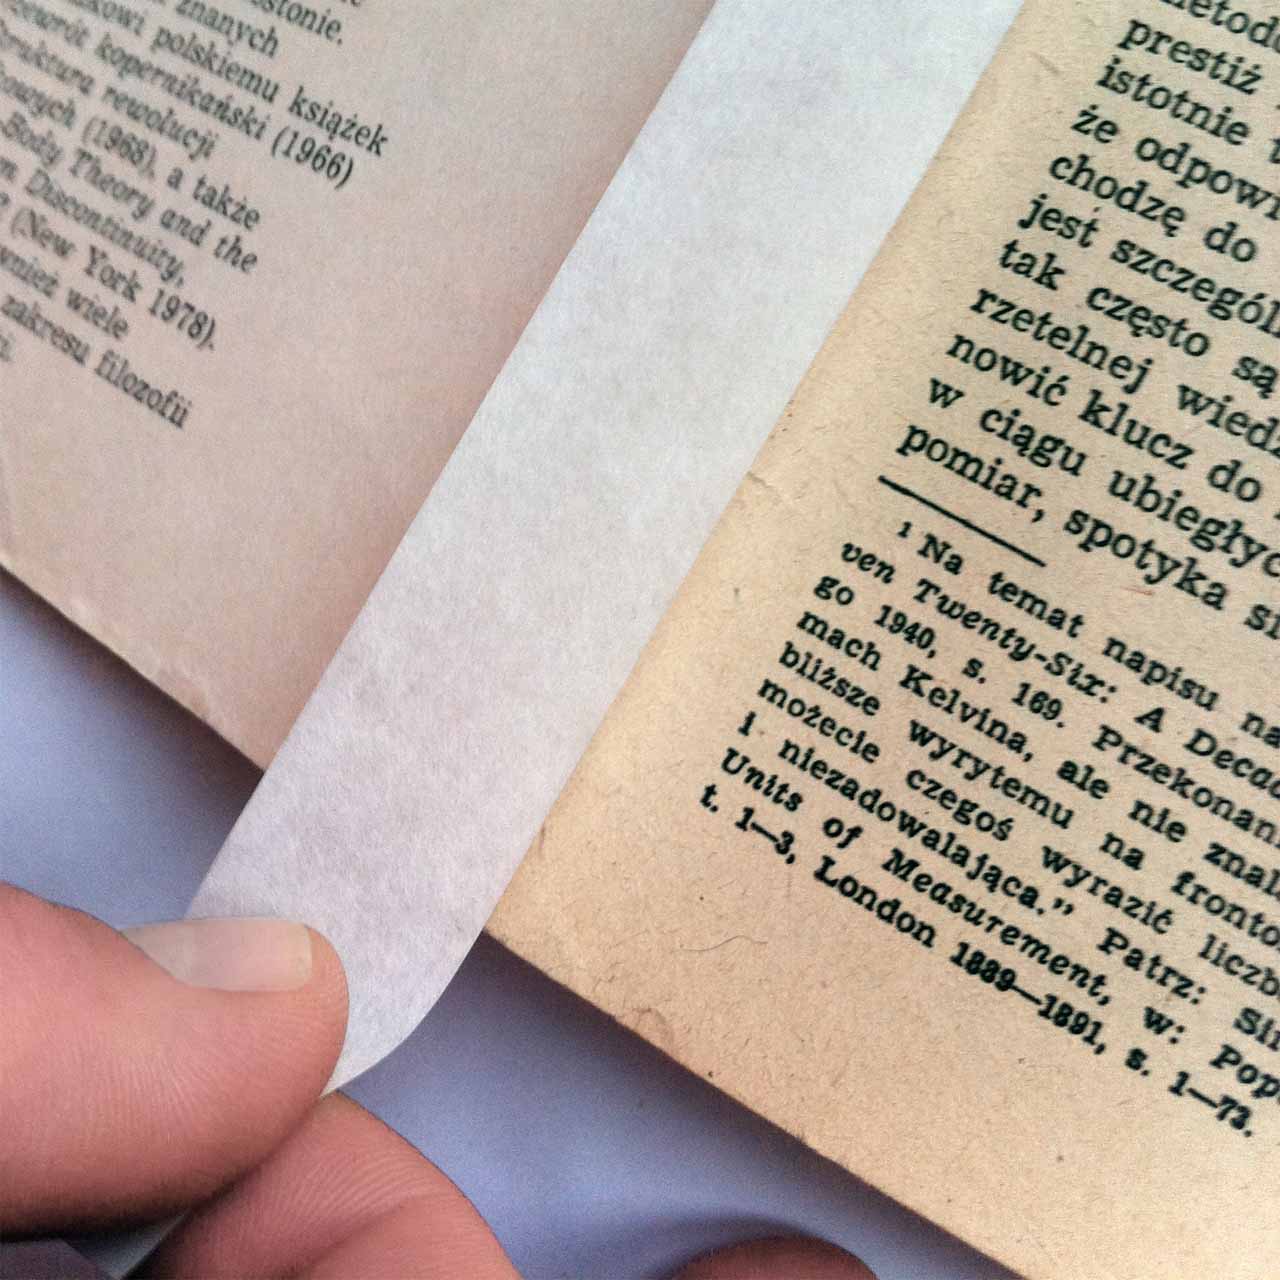 ostonie.
znanych
polskiemu książek
kopernikański (1966)
rewolucji
(1968), a także
Body Theory and the
Discontinuity,
(New York 1978).
wiele
zakresu filozofii
prestiż
istotnie
że odpow
chodzę do
jest szczegól
tak często są
rzetelnej wiedz
nowić klucz do
w ciągu ubiegłyc
pomiar, spotyka si
1 Na temat napisu na
ven Twenty-Six: A Decad
go 1940, s. 169. Przekonani
mach Kelvina, ale nie znal
bliższe wyrytemu na fronto
możecie czegoś wyrazić liczb
i niezadowalająca.” Patrz: Sir
Units of Measurement, w: Popu
t. 1—3, London 1889—1891, s. 1—73.